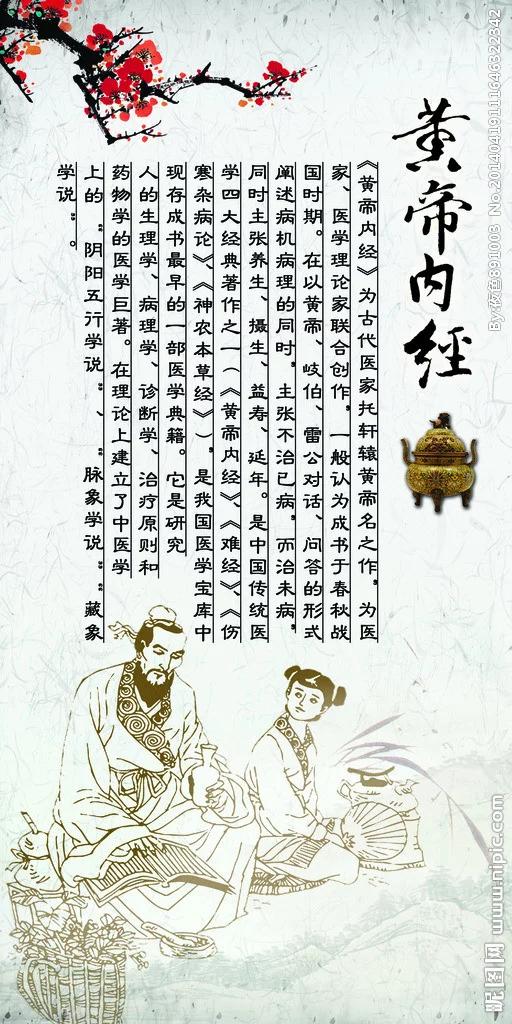 黄帝内經
《黄帝内经》为古代医家托轩辕黄帝名之作，为医
家、医学理论家联合创作，一般认为成书于春秋战
国时期。在以黄帝、岐伯、雷公对话、问答的形式
阐述病机病理的同时，主张不治已病，而治未病，
同时主张养生、摄生、益寿、延年。是中国传统医
学四大经典著作之一（《黄帝内经》、《难经》、《伤
寒杂病论》、《神农本草经》），是我国医学宝库中
现存成书最早的一部医学典籍。它是研究
人的生理学、病理学、诊断学、治疗原则和
药物学的医学巨著。在理论上建立了中医学
上的“阴阳五行学说”、“脉象学说”“藏象
学说”。
By:夜色891003 No.20140419111646322342
昵图网 www.nipic.com